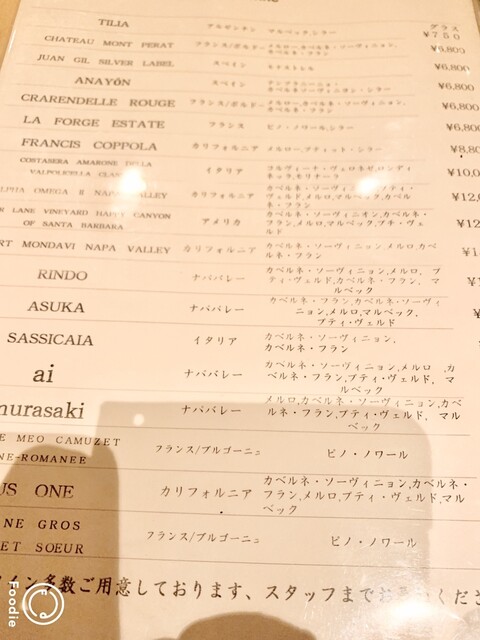 グラス
TILIA アルゼンチン マルベック,シラー ¥750
CHATEAU MONT PERAT フランス/ボルドー メルロー,カベルネ・ソーヴィニョン, カベルネ・フラン ¥6,800
JUAN GIL SILVER LABEL スペイン モナストレル ¥6,800
ANAYÓN スペイン テンプラニーニョ, カベルネ・ソーヴィニヨン・シラー ¥6,800
CRARENDELLE ROUGE フランス/ボルドー メルロー,カベルネ・ソーヴィニョン, カベルネ・フラン ¥6,800
LA FORGE ESTATE フランス ピノ・ノワール,シラー ¥6,800
FRANCIS COPPOLA カリフォルニア メルロー,プティット・シラー ¥8,80
COSTASERA AMARONE DELLA
VALPOLICELLA CLAS イタリア コルヴィーナ・ヴェロネゼ,ロンディネッラ,モリナーラ ¥10,0
ALPHA OMEGA II NAPA VALLEY カリフォルニア カベルネ・ソーヴィニヨン,プティ・ヴェルド,メルロ,マルベック,カベルネ・フラン ¥12,
LANE VINEYARD HAPPY CANYON
OF SANTA BARBARA アメリカ カベルネ・ソーヴィニオン,カベルネ・フラン,メルロ,マルベック,プチ・ヴェルド ¥12
RT MONDAVI NAPA VALLEY カリフォルニア カベルネ・ソーヴィニョン,メルロ,カベルネ・フラン ¥1
RINDO ナパバレー カベルネ・ソーヴィニョン,メルロ, プティ・ヴェルド,カベルネ・フラン, マルベック ¥
ASUKA ナパバレー カベルネ・フラン,カベルネ・ソーヴィニョン,メルロ,マルベック, プティ・ヴェルド
SASSICAIA イタリア カベルネ・ソーヴィニョン, カベルネ・フラン
ai ナパバレー カベルネ・ソーヴィニョン,メルロ ,カベルネ・フラン,プティ・ヴェルド, マルベック
murasaki ナパバレー メルロ,カベルネ・ソーヴィニョン,カベルネ・フラン,プティ・ヴェルド, マルベック
E MEO CAMUZET
NE-ROMANEE フランス/ブルゴーニュ ピノ・ノワール
US ONE カリフォルニア カベルネ・ソーヴィニョン,カベルネ・フラン,メルロ,プティ・ヴェルド, マルベック
NE GROS
ET SOEUR フランス/ブルゴーニュ ピノ・ノワール
イン多数ご用意しております、スタッフまでお
Foodie